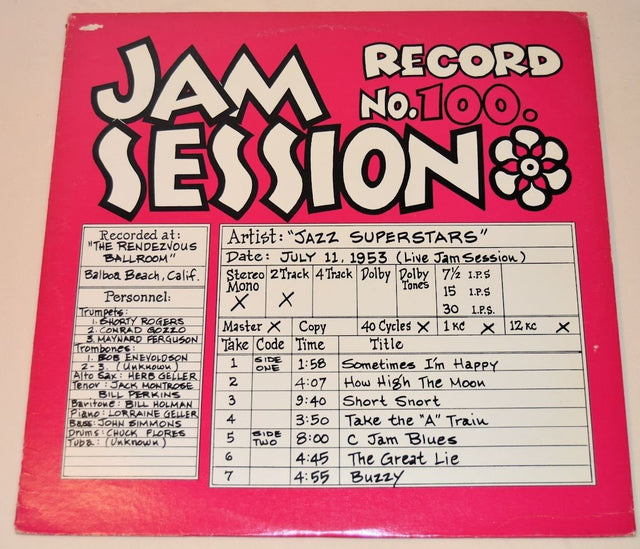 JAM SESSION
RECORD
No. 100.
Recorded at:
"THE RENDEZVOUS
BALLROOM"
Balboa Beach, Calif.
Personnel:
Trumpets:
1. SHORTY ROGERS
2. CONRAD GOZZO
3. MAYNARD FERGUSON
Trombones:
1. BOB ENEVOLDSON
2-3. (Unknown)
Alto Sax: HERB GELLER
Tenor: JACK MONTROSE
BILL PERKINS
Baritone: BILL HOLMAN
Piano: LORRAINE GELLER
Bass: JOHN SIMMONS
Drums: CHUCK FLORES
Tuba: (Unknown)
Artist: "JAZZ SUPERSTARS"
Date: JULY 11, 1953 (Live Jam Session)
Stereo Mono X 2 Track X 4 Track Dolby Dolby Tones 7½ I.P.S
15 I.P.S
30 I.P.S.
Master X Copy 40 Cycles X 1 KC X 12 KC X
Take Code Time Title
1 SIDE ONE 1:58 Sometimes I'm Happy
2 4:07 How High The Moon
3 9:40 Short Snort
4 3:50 Take the "A" Train
5 SIDE TWO 8:00 C Jam Blues
6 4:45 The Great Lie
7 4:55 Buzzy